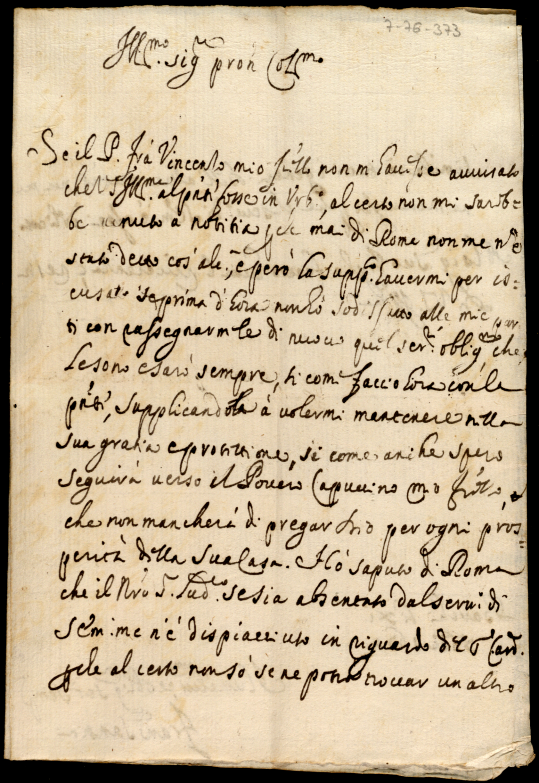 7-76-373
Ill.mo sig.r pron Coll.mo
Se il P. frà Vincento mio f'llo non m'hauesse auuisato
che V.S. Ill.ma al p'nti fosse in Vrb.o, al certo non mi sareb=
be venuto a notitia, ch'è mai di Roma non me n'è
stato detto cos'ale., e però la supp.o hauermi per is=
cusato se prima d'hora non hò sodisfatto alle mie par
ti con rassegnarmele di nuouo quel ser.re oblig.mo che
le sono e sarò sempre, si come faccio hora con la
p'nte, supplicandola à volermi mantenere nella
sua gratia e protettione, si come anche spero
seguirà verso il Pouero Capuccino mio f'llo,
che non mancherà di pregar Iddio per ogni pros=
perità della sua Casa. Hò saputo di Roma
che il N'ro S. Lud.co se sia absentato dal serui di
S. Em. me n'è dispiacciuto in riguardo del S. Card.
le al certo non sò se ne potrà trouar un altro